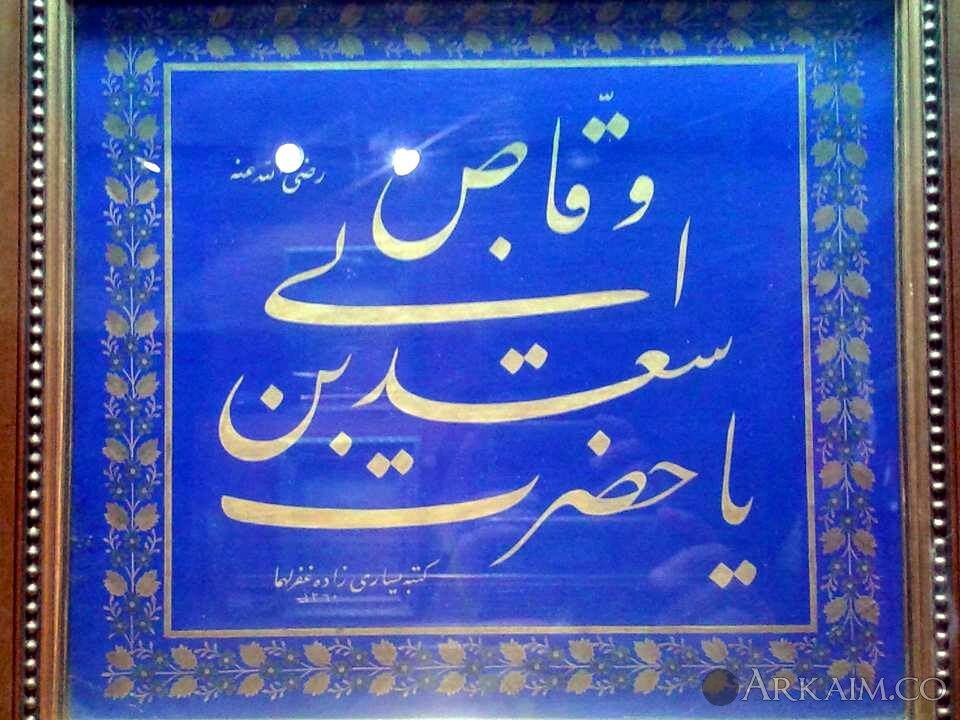 یا حضرت
سعد بن
ابی
وقّاص
رضی الله عنه
کتبه یساری زاده غفر لهما
١٢٦٠
ARKAIM.CO